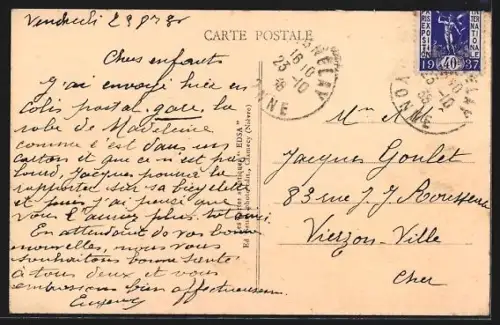 Vendredi 23 8bre 36
CARTE POSTALE
Chers enfants
J'ai envoyé hier en
colis postal gare la
robe de Madeleine
comme c'est dans un
carton et que ce n'est pas
lourd, Jacques pourra le
rapporter sur sa bicyclette
et puis j'ai pensé que
vous l'auriez plus tôt ainsi.
En attendant de vos bonnes
nouvelles, nous vous
souhaitons bonne santé
à tous deux, et vous
embrassons bien affectueusement
"EDSA"
Clamecy (Nièvre)
EXPOSITION INTERNATIONALE
PARIS
19 40c 37
VEZELAY
16 10
23-10
36
YONNE
VEZELAY
23-10
36
YONNE
Mr
Jacques Goulet
83 rue J. J. Rousseau
Vierzon-Ville
Cher